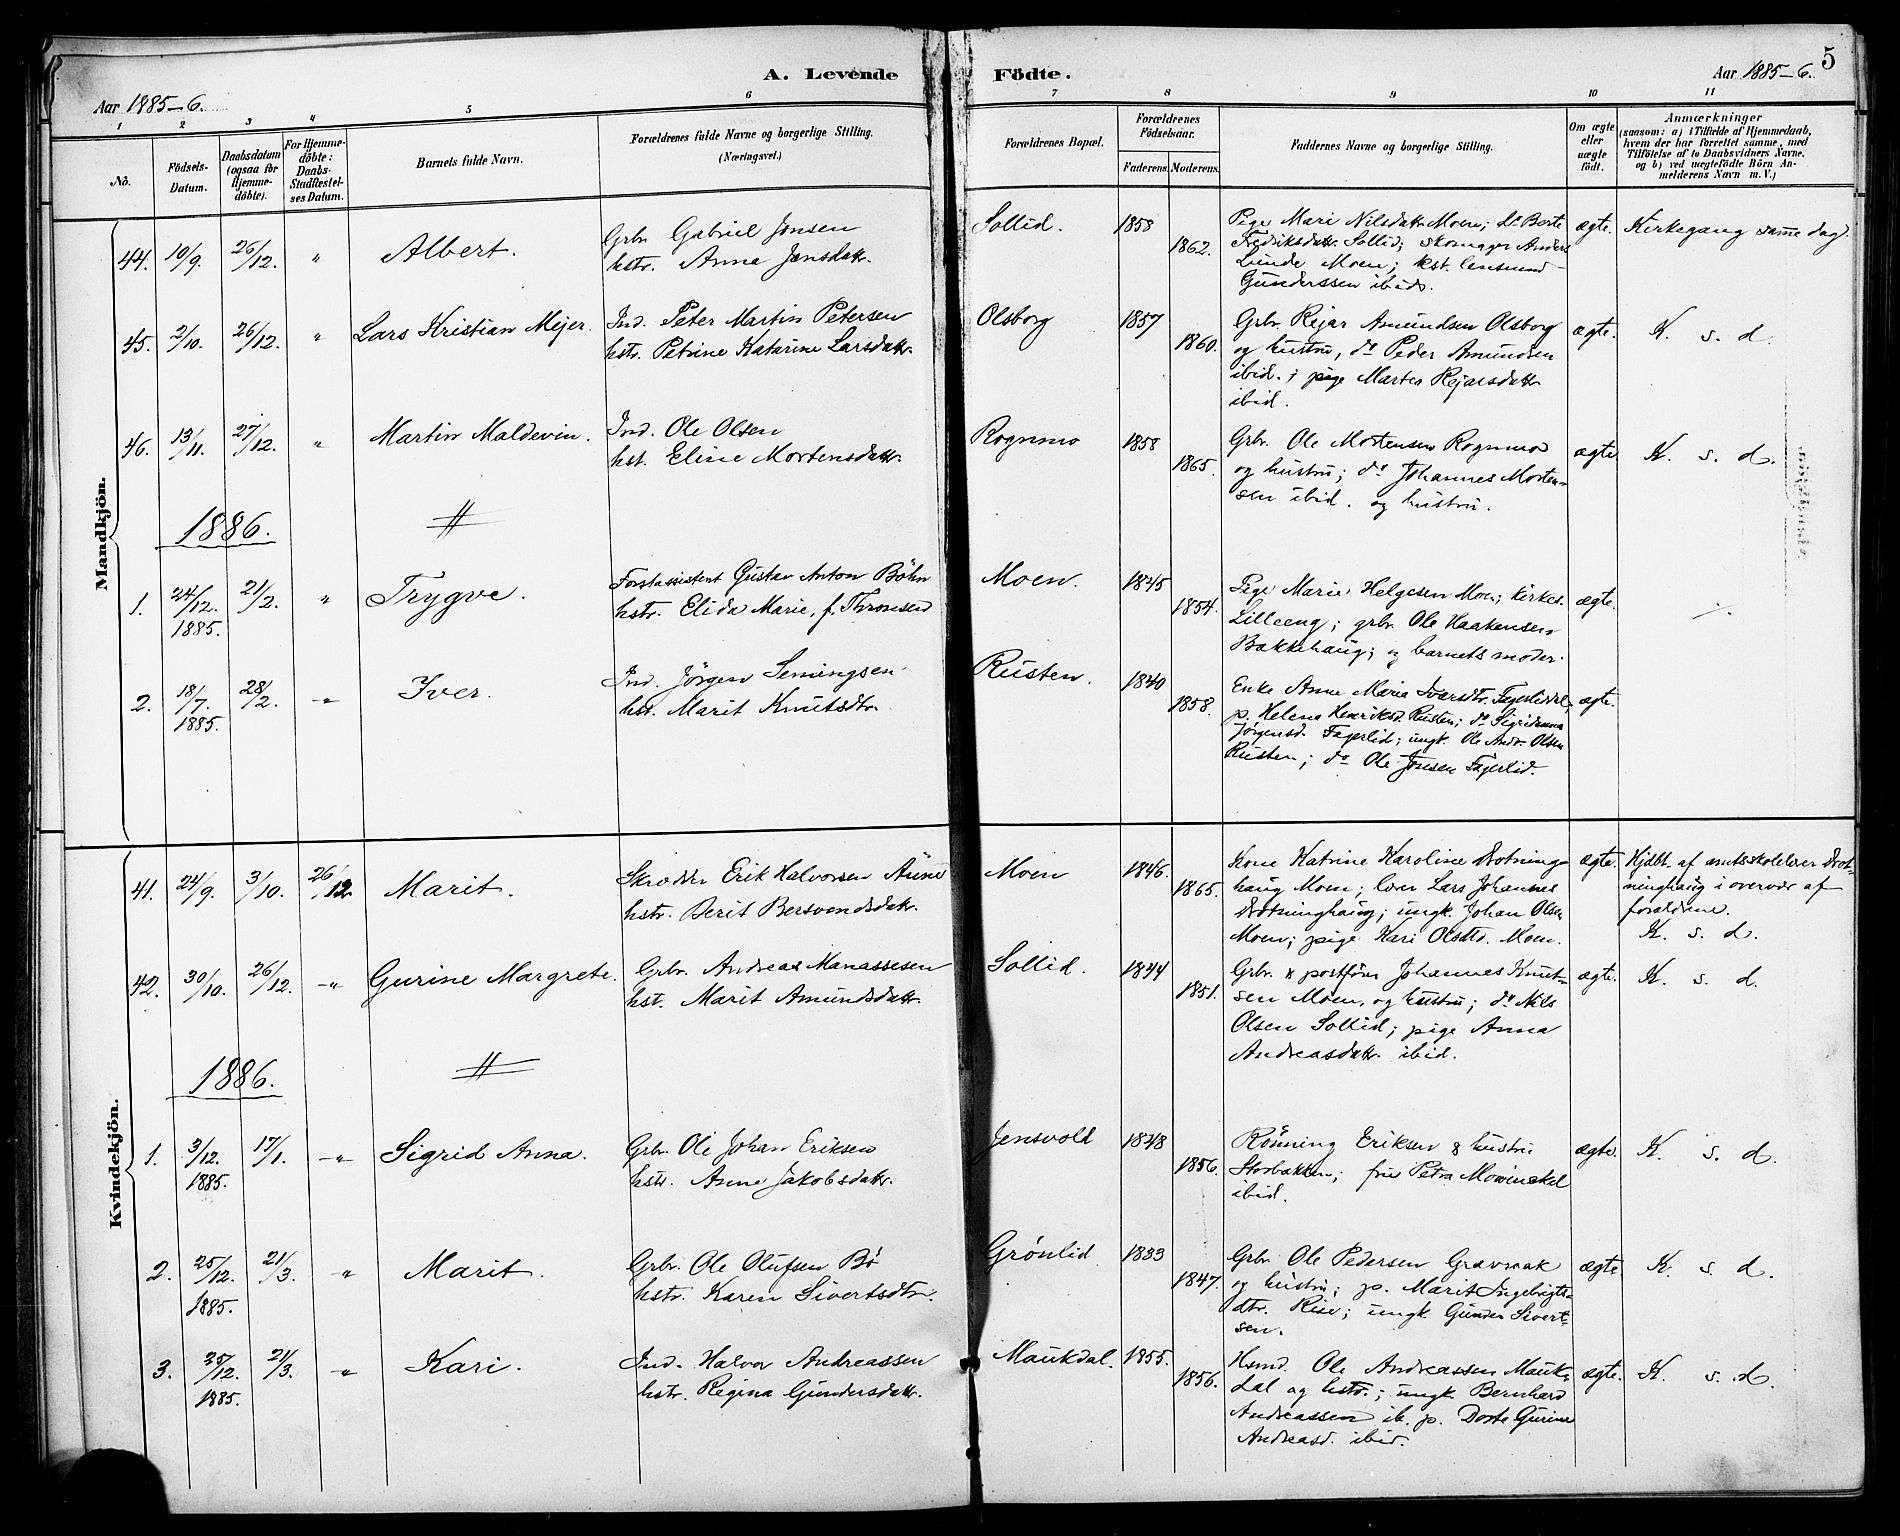 A. Levende Födte.
5
Aar 1885-6.
Aar 1885-6.
1 2 3 4 5 6 7 8 9 10 11
No.
Födsels-
Datum.
Daabsdatum
(ogsaa for
Hjemme-
döbte).
For Hjemme-
döbte:
Daabs-
Stadfæstel-
ses Datum.
Barnets fulde Navn.
Forældrenes fulde Navne og borgerlige Stilling.
(Næringsvei.)
Forældrenes Bopæl.
Forældrenes
Födselsaar.
Faderens. Moderens.
Faddernes Navne og borgerlige Stilling.
Om ægte
eller
uægte
födt.
Anmærkninger
(saasom: a) i Tilfælde af Hjemmedaab,
hvem der har forrettet samme, med
Tilföielse af to Daabsvidners Navne.
og b) ved uægtefödte Börn An-
melderens Navn m. V.)
Mandkjön.
44. 10/9. 26/12. " Albert.
Grbr. Gabriel Jonsen
hstr. Anna Jensdatr.
Sollid. 1858 1862.
Pige Mari Nilsdatr. Moen; do Berte
Fredriksdatr. Sollid; skomager Anders
Lunde Moen; kst. lensmand
Gunderssen ibid.
ægte. Kirkegang samme dag.
45. 2/10. 26/12. " Lars Kristian Mejer.
Ind. Peter Martin Petersen
hstr. Petrine Katarine Larsdatr.
Olsborg 1857 1860.
Grbr. Rejar Amundsen Olsborg
og hustru, do Peder Amundsen
ibid.; pige Martea Rejarsdatr.
ibid.
ægte. K. s. d.
46. 13/11. 27/12. " Martin Maldevin.
Ind. Ole Olsen
hst. Eline Mortensdatr.
Rognmo 1858 1865.
Grbr. Ole Mortensen Rognmo
og hustru; do Johannes Morten-
sen ibid. og hustru.
ægte K. s. d.
1886. #
1. 24/12. 1885. 21/2. " Trygve.
Forstassistent Gustav Anton Bøhn
hstr. Elida Marie, f. Thronsen
Moen. 1845 1854.
Pige Marie Helgesen Moen; kirkes.
Lilleeng; grbr. Ole Haakensen
Bakkehaug; og barnets moder.
ægte.
2. 18/7. 1885. 28/2. " Iver.
Ind. Jörgen Semingsen
hst. Marit Knutsdtr.
Rusten. 1840 1858.
Enke Anne Maria Ivarsdtr. Fagerlid;
p. Helena Henriksd. Rusten; do
Jørgensd. Fagerlid; ungk. Ole Andr. Olsen
Rusten; do Ole Jonsen Fagerlid.
ægte.
Kvindekjön.
41. 24/9. 3/10. 26/12. Marit.
Skrædder Erik Halvorsen Aune
hstr. Berit Bersvendsdatr.
Moen 1846. 1865.
Kone Katrine Karoline Drotning-
haug Moen; lærer Lars Johannes
Drotninghaug; ungk. Johan Olsen
Moen; pige Kari Olsdtr. Moen.
ægte. Hjdbt. af amtsskolelærer Drot-
ninghaug i overvær af
forældrene.
K. s. d.
42. 30/10. 26/12. " Gurine Margrete.
Grbr. Andreas Manassesen
hst. Marit Amundsdatr.
Sollid. 1844 1851.
Grbr. & postfører Johannes Knut-
sen Moen, og hustru; do Nils
Olsen Sollid; pige Anna
Andreasdatr. ibid.
ægte. K. s. d.
1886. #
1. 3/12. 1885. 17/1. " Sigrid Anna.
Grbr. Ole Johan Eriksen
hstr. Anne Jakobsdatr.
Jensvold 1848 1856.
Rönning Eriksen & hustru
Storbakken; fru Petra Mowinckel
ibid.
ægte. K. s. d.
2. 25/12. 1885. 21/3. " Marit.
Grbr. Ole Olufsen Bø
hstr. Karen Sivertsdtr.
Grønlid. 1833 1847.
Grbr. Ole Pedersen Gravraak
og hustru; p. Marit Ingebrigts-
dtr. Rise; ungk. Gunder Sivert-
sen.
ægte. K. s. d.
3. 25/12. 1885. 21/3. " Kari.
Ind. Halvor Andreassen
hstr. Regina Gundersdatr.
Maukdal. 1855. 1856.
Hsmd. Ole Andreassen Mauk-
dal og hstr.; ungk. Bernhard
Andreassen ib. p. Dorte Gurine
Andreasd. ibid.
ægte. K. s. d.